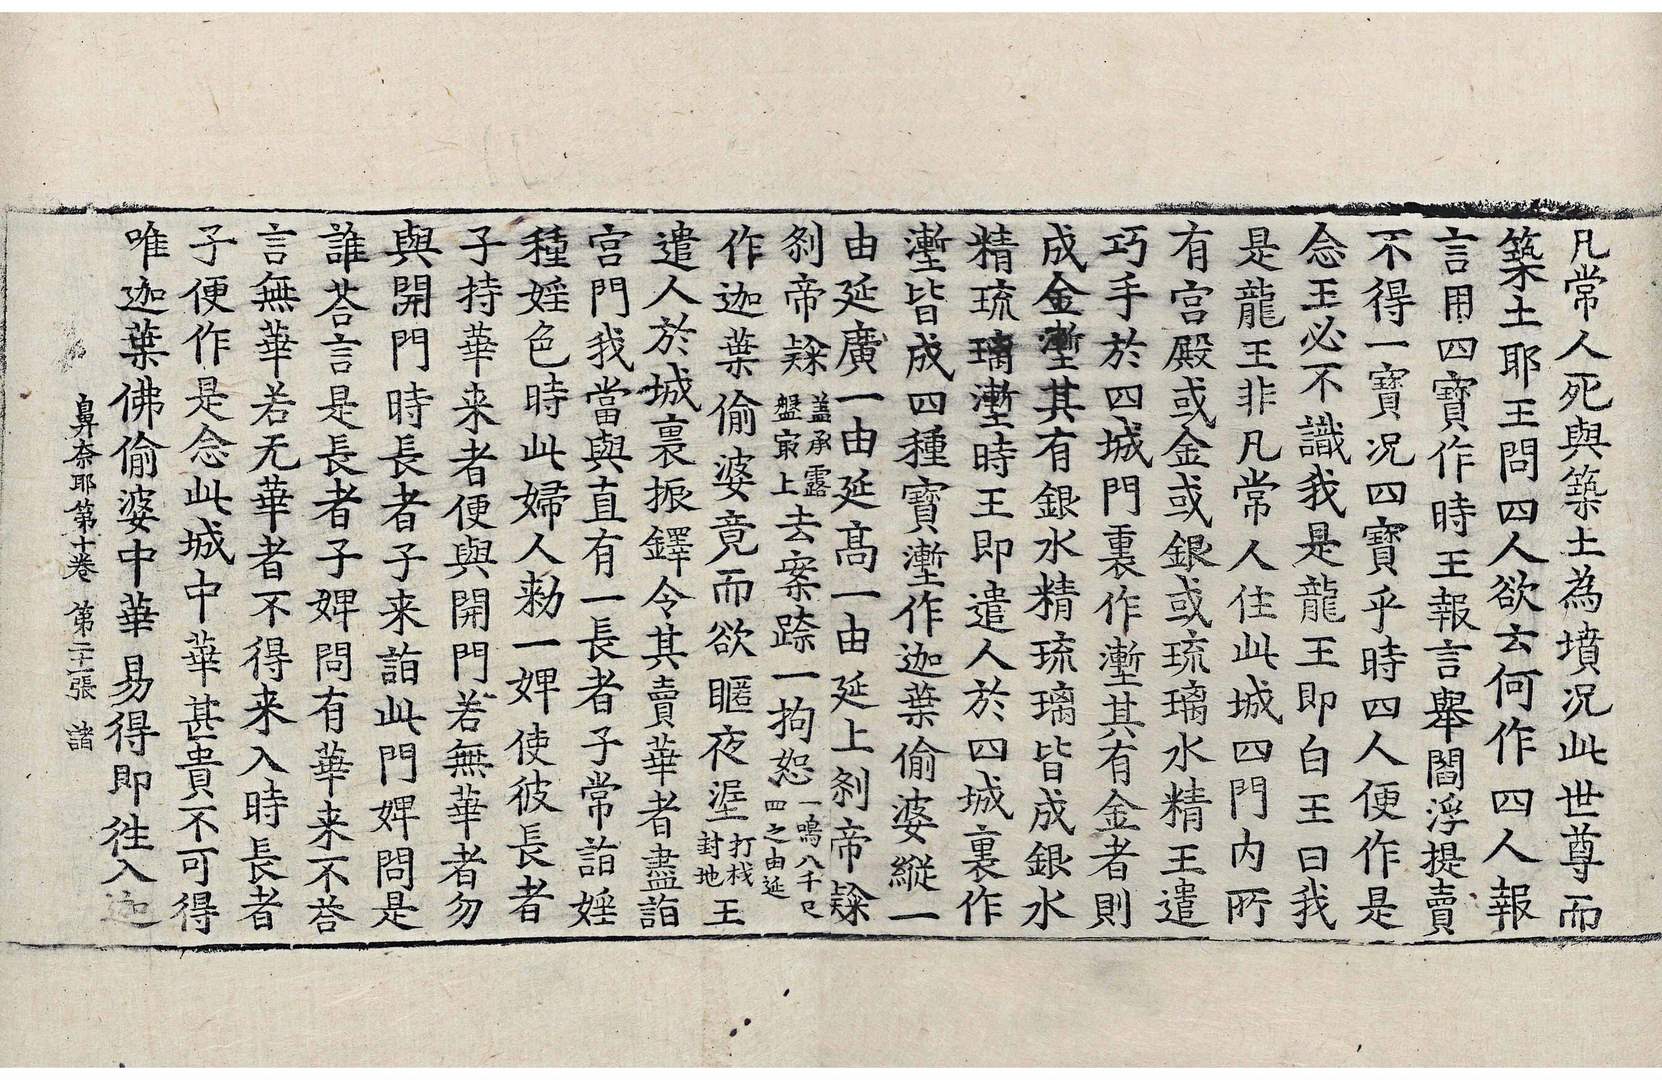 凡常人死與築土為墳況此世尊而
築土耶王問四人欲去何作四人報
言用四寶作時王報言舉閻浮提賣
不得一寶況四寶乎時四人便作是
念王必不識我是龍王即白王曰我
是龍王非凡常人住此城四門內所
有宮殿或金或銀或琉璃水精王遣
巧手於四城門裏作塹其有金者則
成金塹其有銀水精琉璃皆成銀水
精琉璃塹時王即遣人於四城裏作
塹皆成四種寶塹作迦葉偷婆縱一
由延廣一由延高一由延上剎帝𨽻
剎帝𨽻蓋承露盤㝡上去案跡一拘恕一鳴八千尺四之由延
作迦葉偷婆竟而欲暱夜涅打栈封地王
遣人於城裏振鐸令其賣華者盡詣
宮門我當與直有一長者子常詣婬
種婬色時此婦人勑一婢使彼長者
子持華来者便與開門若無華者勿
與開門時長者子来詣此門婢問是
誰荅言是長者子婢問有華来不荅
言無華若无華者不得来入時長者
子便作是念此城中華甚貴不可得
唯迦葉佛偷婆中華易得即往入迦
鼻奈耶第十卷 第二十一張 諸